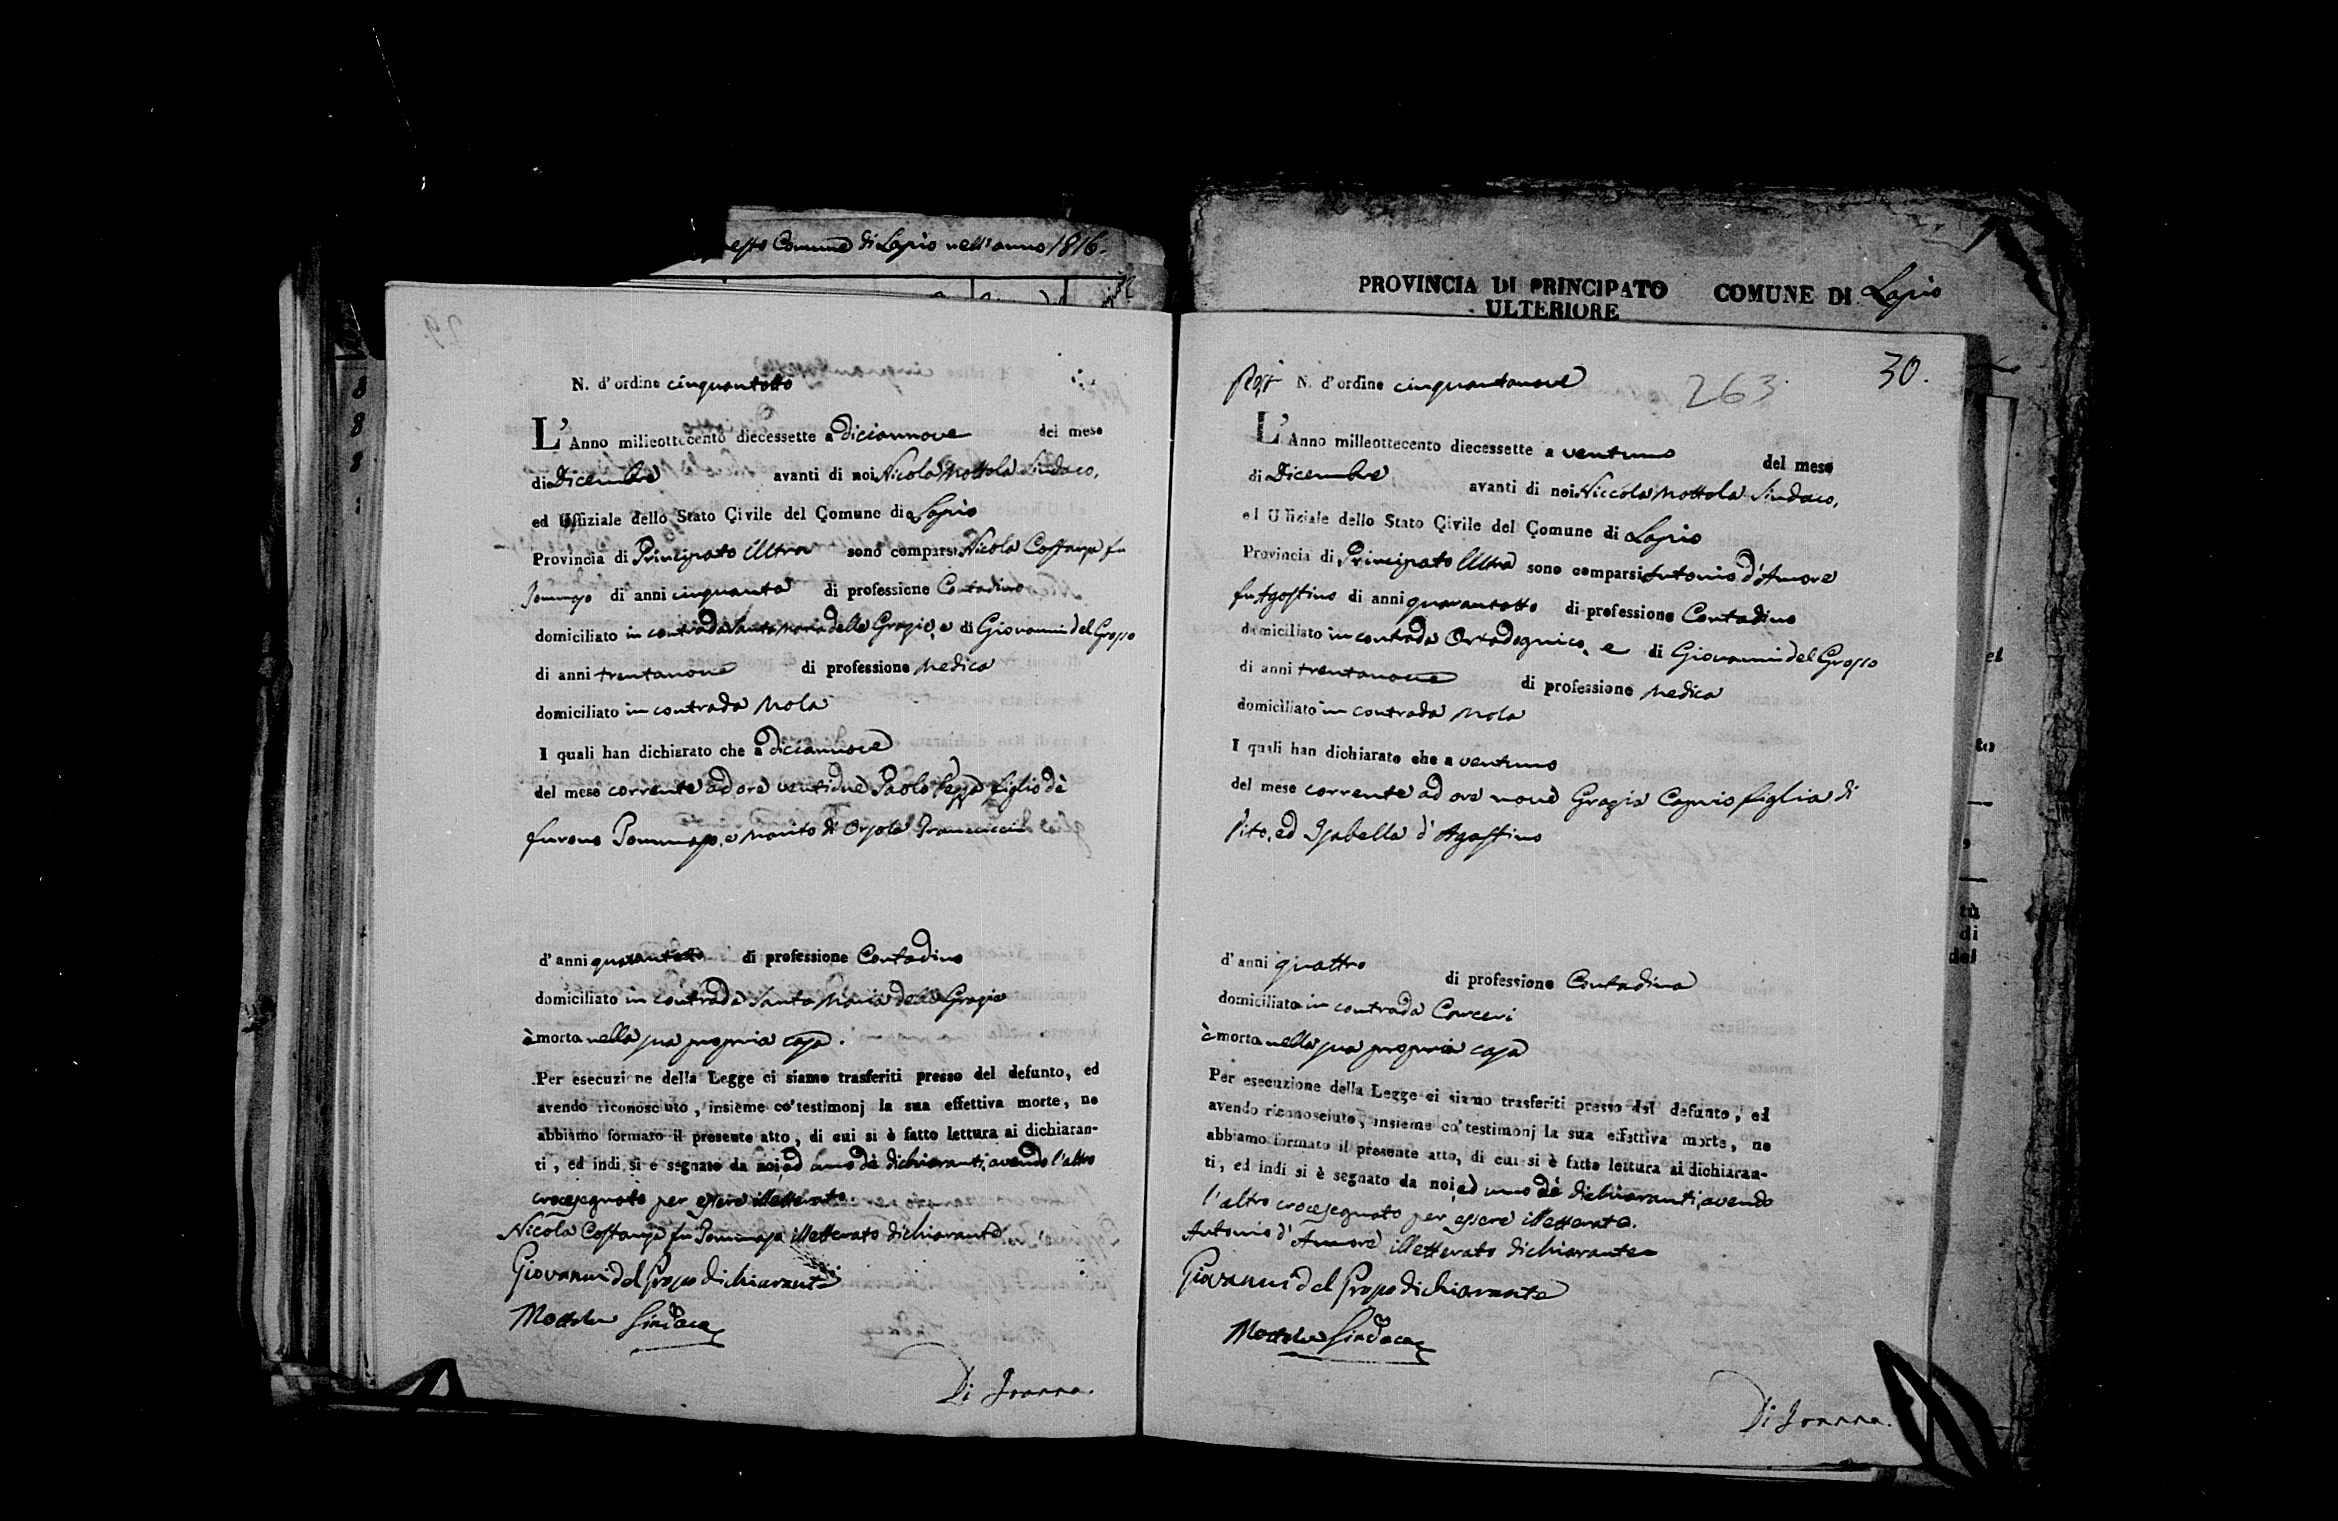 esto Comune di Lapio nell'anno 1816.
PROVINCIA DI PRINCIPATO ULTERIORE COMUNE DI Lapio
29
N. d'ordine cinquantotto
L'Anno milleottecento diecessette a diciannove del mese
di Dicembre avanti di noi Nicola Mottola Sindaco,
ed Uffiziale dello Stato Civile del Comune di Lapio
Provincia di Principato Ultra sono comparsi Nicola Costanza fu
Tommaso di anni cinquanta di professione Contadino
domiciliato in contrada Santa Maria delle Grazie, e di Giovanni del Grosso
di anni trentanove di professione Medico
domiciliato in contrada Mola
I quali han dichiarato che a diciannove
del mese corrente ad ore ventidue Paolo figlio de
furono Tommaso, e marito di Orsola
d'anni quarantotto di professione Contadino
domiciliato in contrada Santa Maria delle Grazie
è morto nella sua propria casa.
Per esecuzione della Legge ci siamo trasferiti presso del defunto, ed
avendo riconosciuto, insieme co'testimonj la sua effettiva morte, ne
abbiamo formato il presente atto, di cui si è fatto lettura ai dichiaran-
ti, ed indi si è segnato da noi, ed uno dè dichiaranti, avendo l'altro
crocesegnato per essere illetterato.
Nicola Costanza fu Tommaso illetterato dichiarante
Giovanni del Grosso dichiarante
Mottola Sindaco
Di Joanna.
30.
263
N. d'ordine cinquantanove
L'Anno milleottecento diecessette a ventuno del mese
di Dicembre avanti di noi Niccola Mottola Sindaco,
ed Uffiziale dello Stato Civile del Comune di Lapio
Provincia di Principato Ultra sono comparsi Antonio d'Amore
fu Agostino di anni quarantotto di professione Contadino
domiciliato in contrada e di Giovanni del Grosso
di anni trentanove di professione Medico
domiciliato in contrada Mola
I quali han dichiarato che a ventuno
del mese corrente ad ore nove Grazia Caprio figlia di
Vito, ed Isabella d'Agostino
d'anni quattro di professione Contadina
domiciliata in contrada Carceri
è morta nella sua propria casa
Per esecuzione della Legge ci siamo trasferiti presso del defunto, ed
avendo riconosciuto, insieme co'testimonj la sua effettiva morte, ne
abbiamo formato il presente atto, di cui si è fatto lettura ai dichiaran-
ti, ed indi si è segnato da noi, ed uno dè dichiaranti, avendo
l'altro crocesegnato per essere illetterato.
Antonio d'Amore illetterato dichiarante
Giovanni del Grosso dichiarante
Mottola Sindaco
Di Joanna.